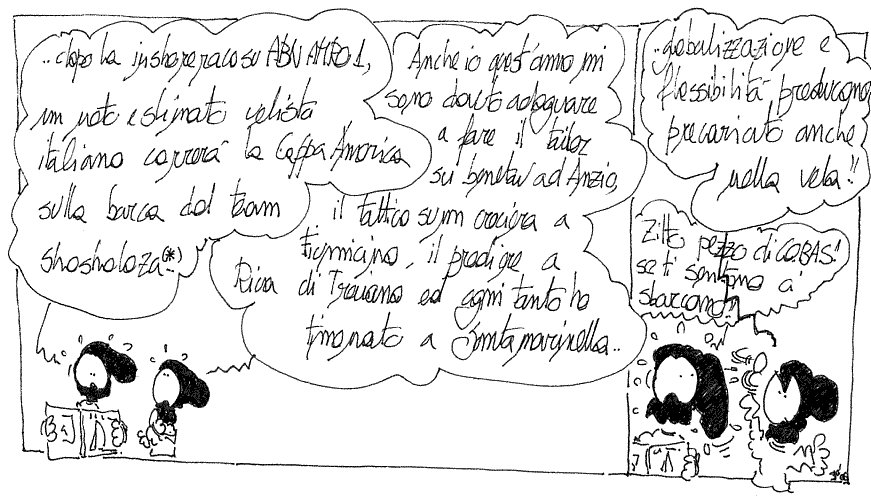 ..dopo la inshore race su ABN AMRO 1,
un noto e stimato velista
italiano correrà la Coppa America
sulla barca del team
shosholoza!!(*)
Anche io quest'anno mi
sono dovuto adeguare
a fare il tailer
su beneteau ad Anzio,
il tattico su un crociera a
fiumicino, il prodiere a
Riva di Traiano, ed ogni tanto ho
timonato a santa marinella..
..globalizzazione e
flessibilità producono
precariato anche
nella vela!!
Zitto pezzo di COBAS!
se ti sentono ci
sbarcano!!